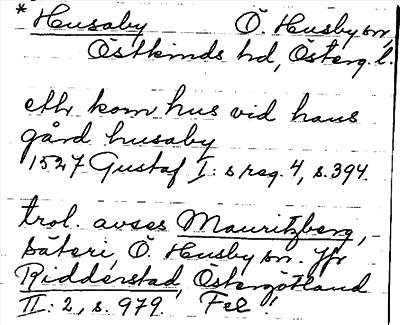 * Husaby Ö. Husby sn,
Östkinds hd, Österg. l.
ethr kom hus vid hans
gård husaby
1527 Gustaf I:s reg. 4, s. 394.
trol. avses Mauritzberg,
säteri, Ö. Husby sn. Jfr
Ridderstad, Östergötland
II: 2, s. 979. Fel!